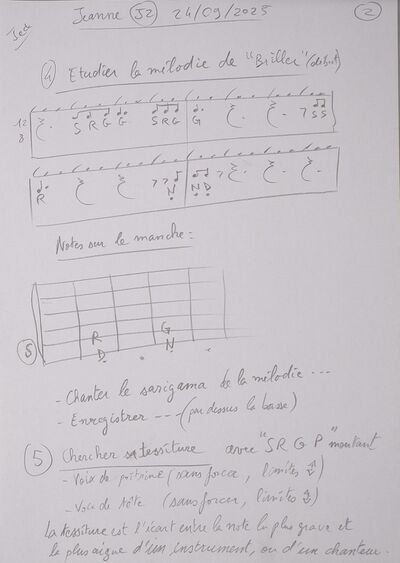 Jeanne J2 24/09/2025 2
④ Etudier la mélodie de "Briller" (début)
12
8
S R G G S R G G 7 S S
R 7 7 N N D
Notes sur le manche :
R G
S D N
- Chanter le sarigama de la mélodie ---
- Enregistrer --- (par dessus la basse)
⑤ Chercher sa tessiture avec "S R G P" montant
- Voix de poitrine (sans forcer, limites
- Voix de tête (sans forcer, limites
La tessiture est l'écart entre la note la plus grave et
la plus aigue d'un instrument, ou d'un chanteur.